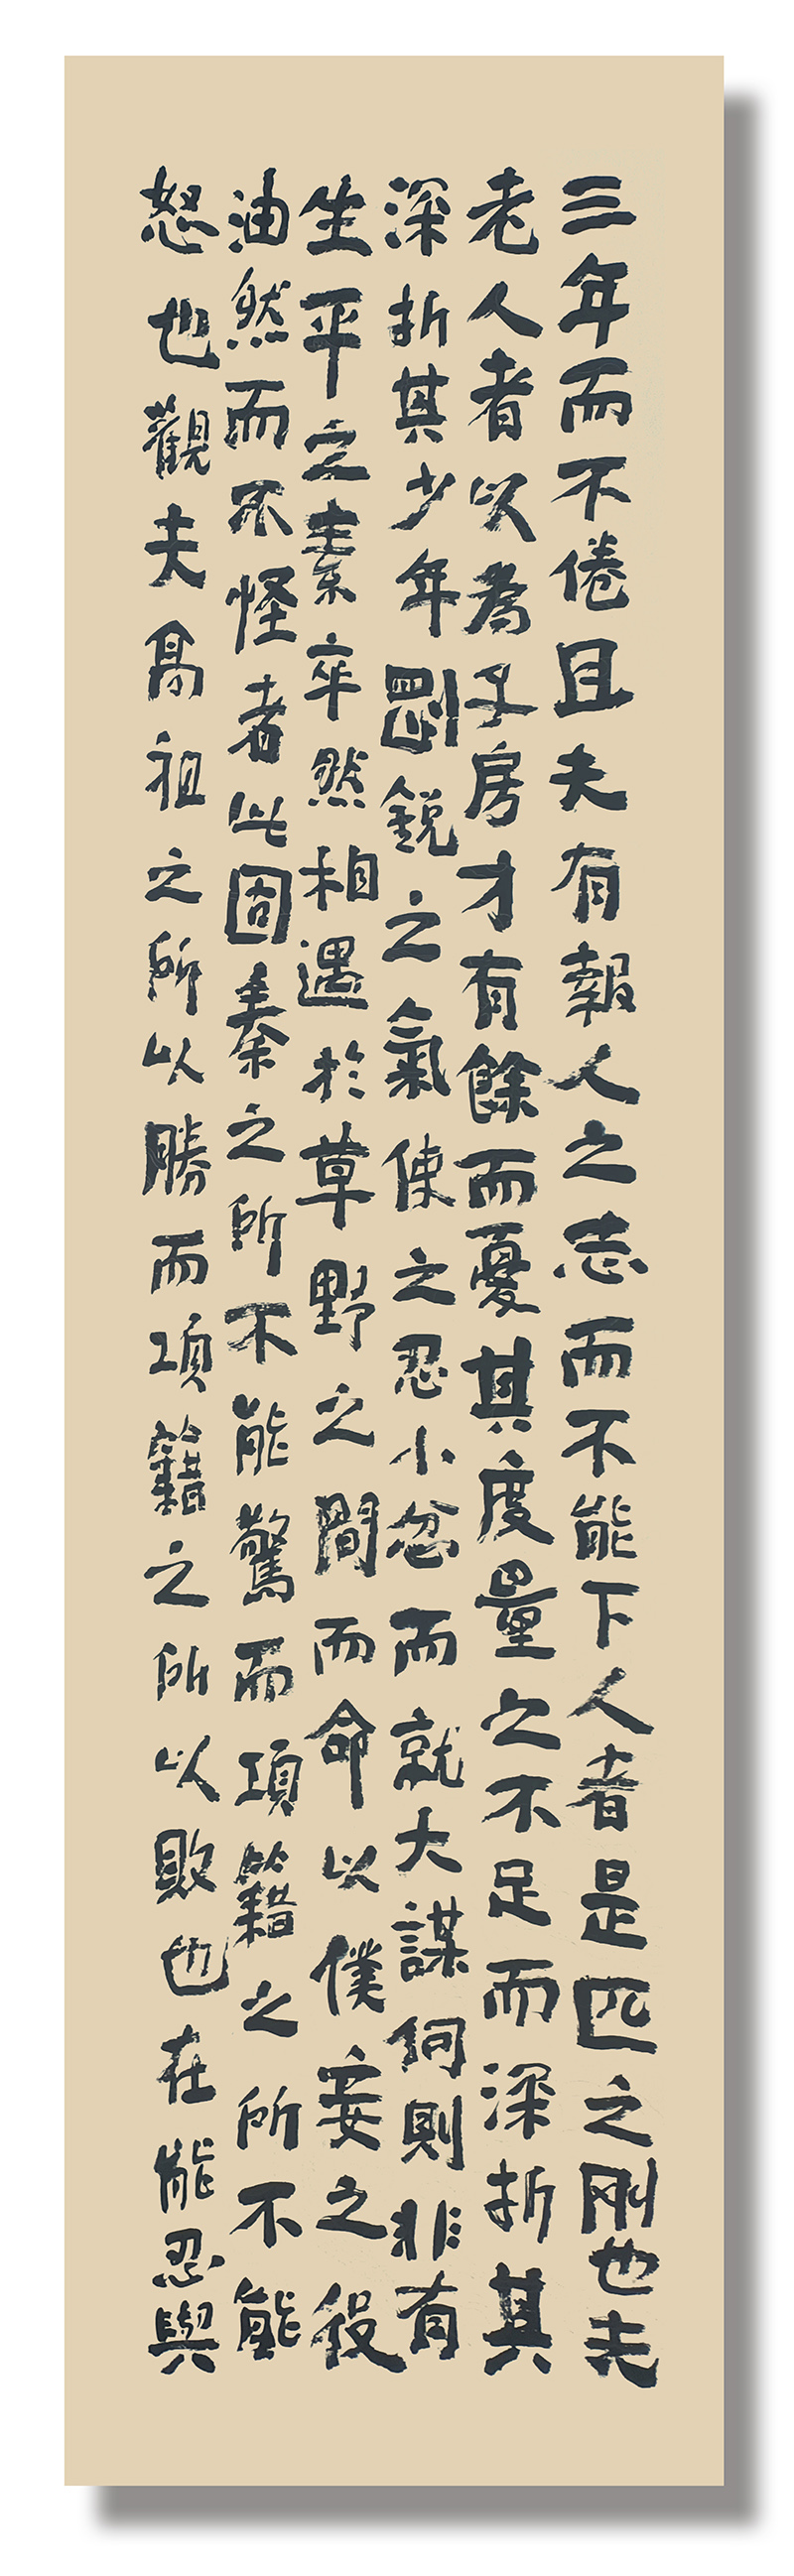 三年而不倦且夫有報人之志而不能下人者是匹之刚也夫
老人者以為子房才有餘而憂其度量之不足而深折其
深折其少年剛銳之氣使之忍小忿而就大謀何則非有
生平之素卒然相遇於草野之間而命以僕妾之役
油然而不怪者此固秦之所不能驚而項籍之所不能
怒也觀夫高祖之所以勝而項籍之所以敗也在能忍與